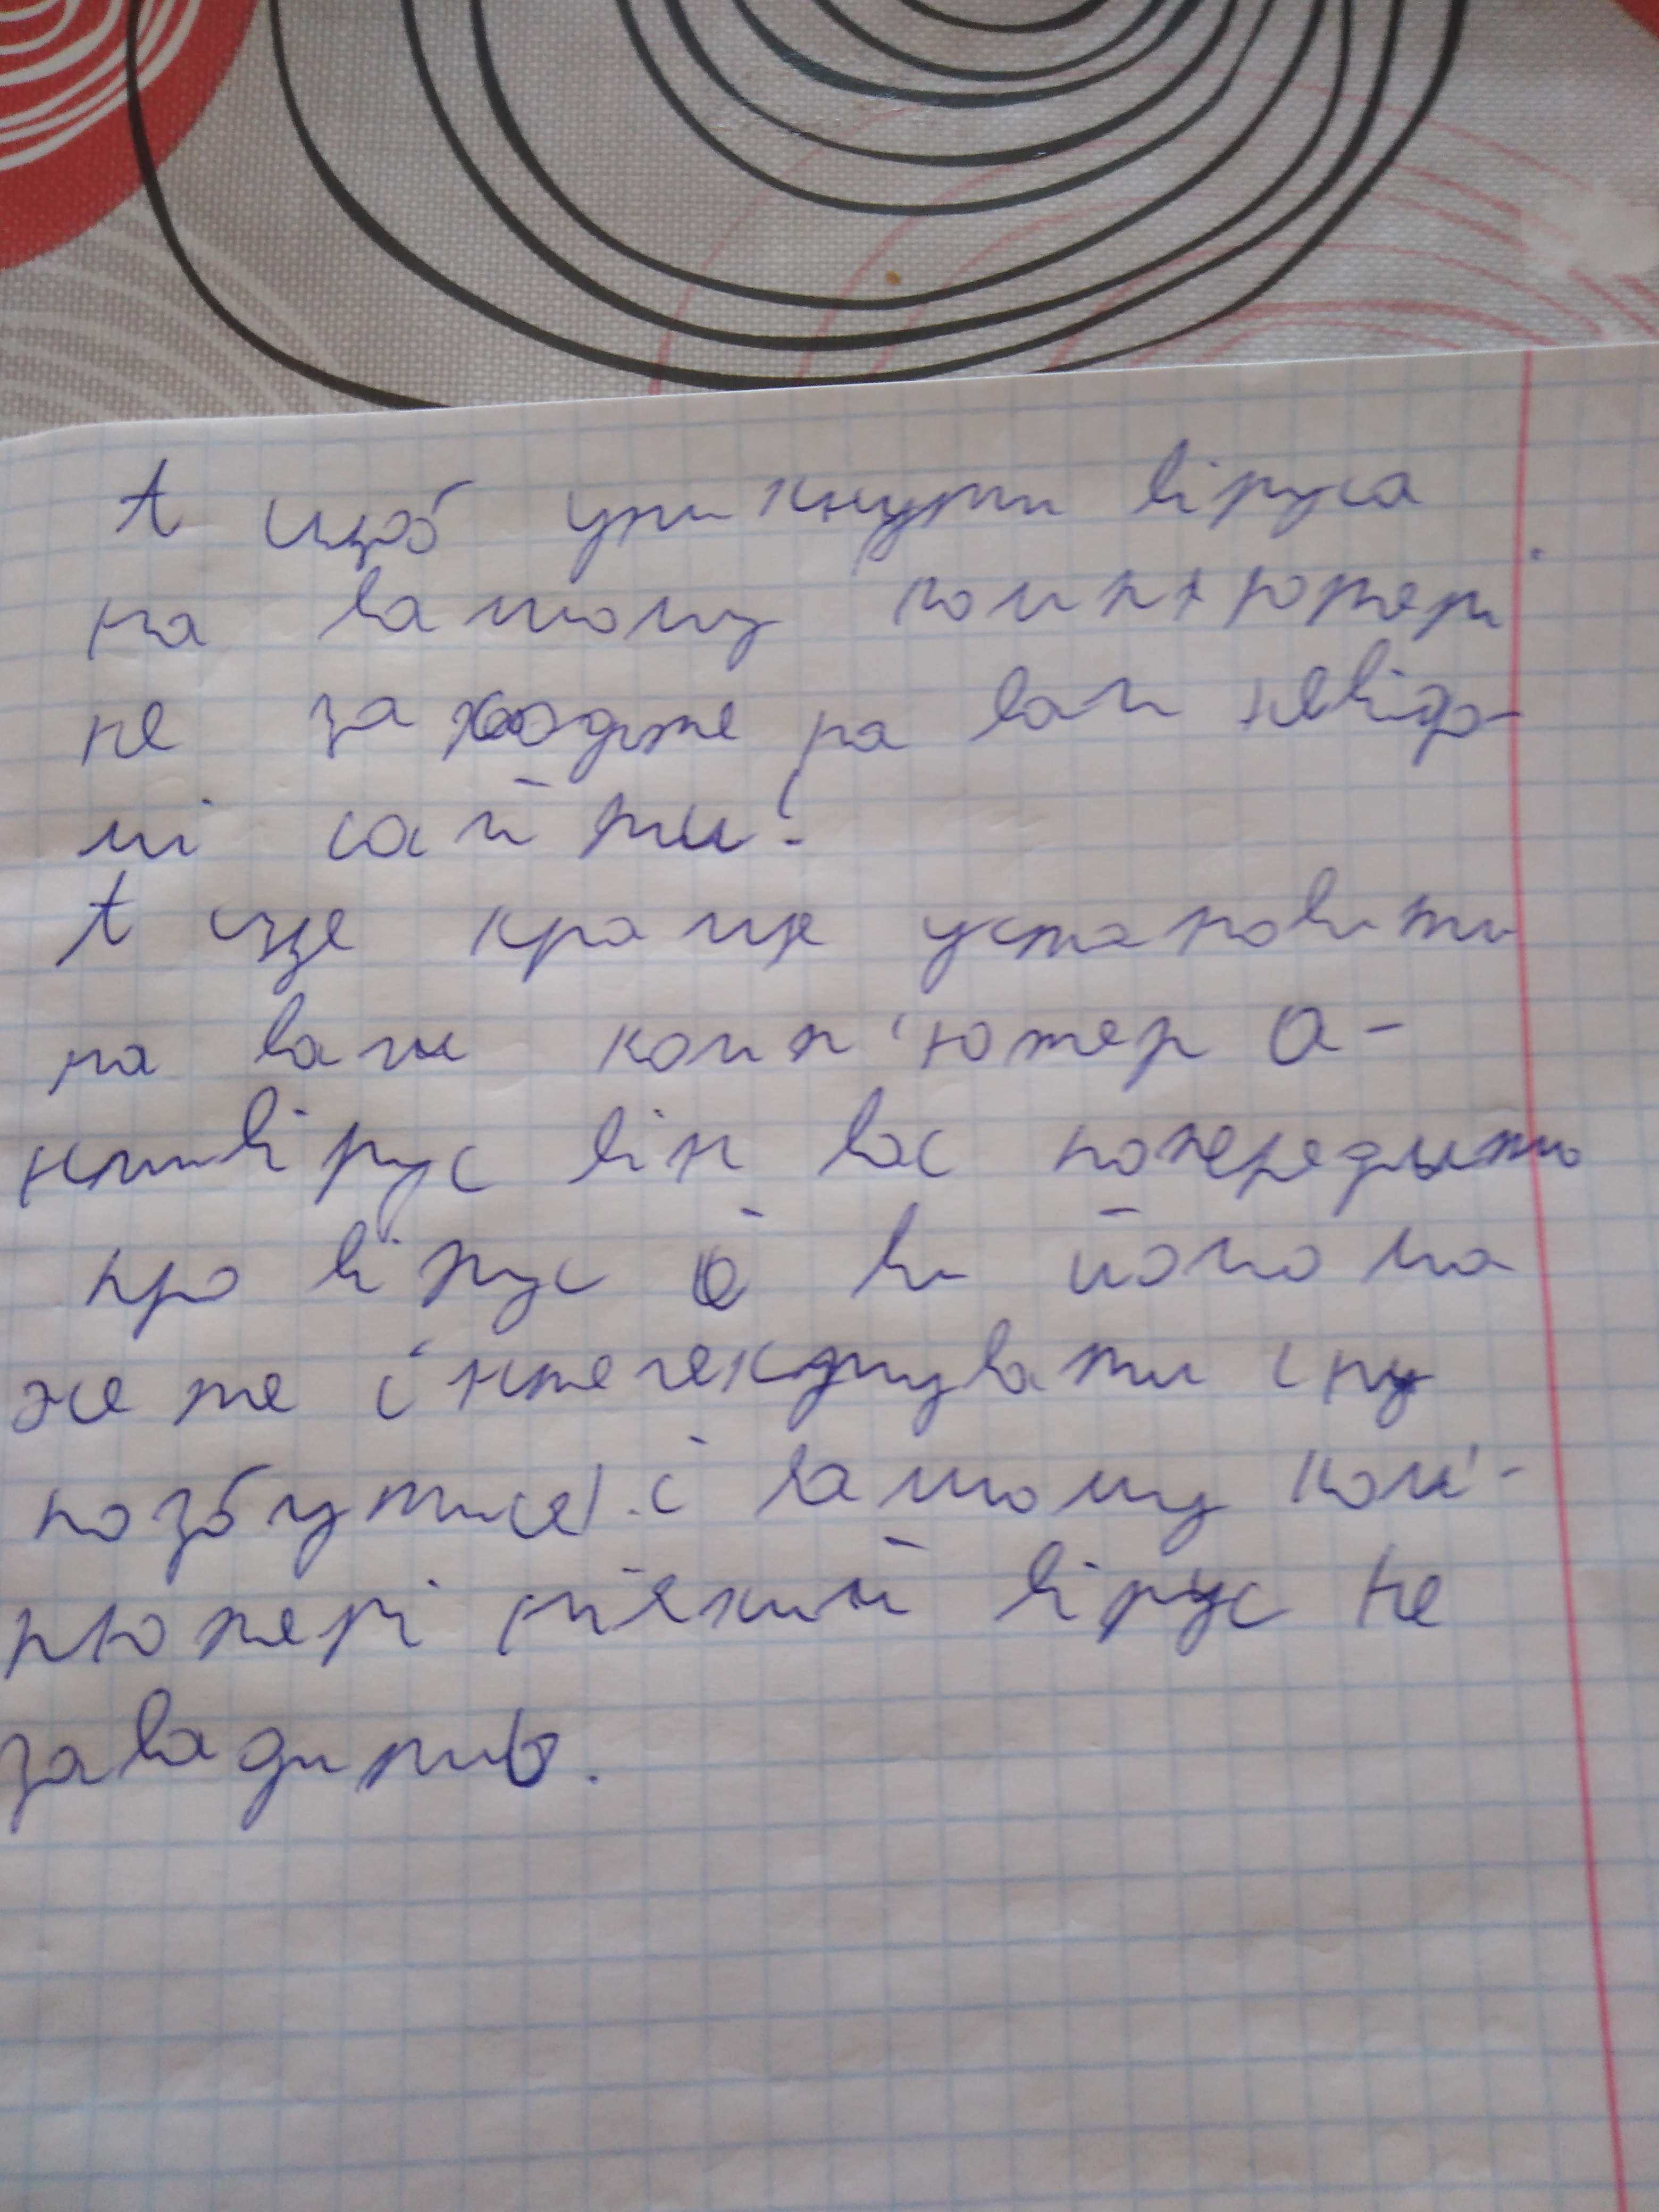 А щоб уникнути віруса
на вашому компютері
не заходьте на вам невідо-
мі сайти.
А ще краще установити
на ваш комп'ютер а-
нтивірус він вас попередить
про вірус й ви його мо
же те і
позбутися і вашому ком'-
пютері ніякий вірус не
завадить.